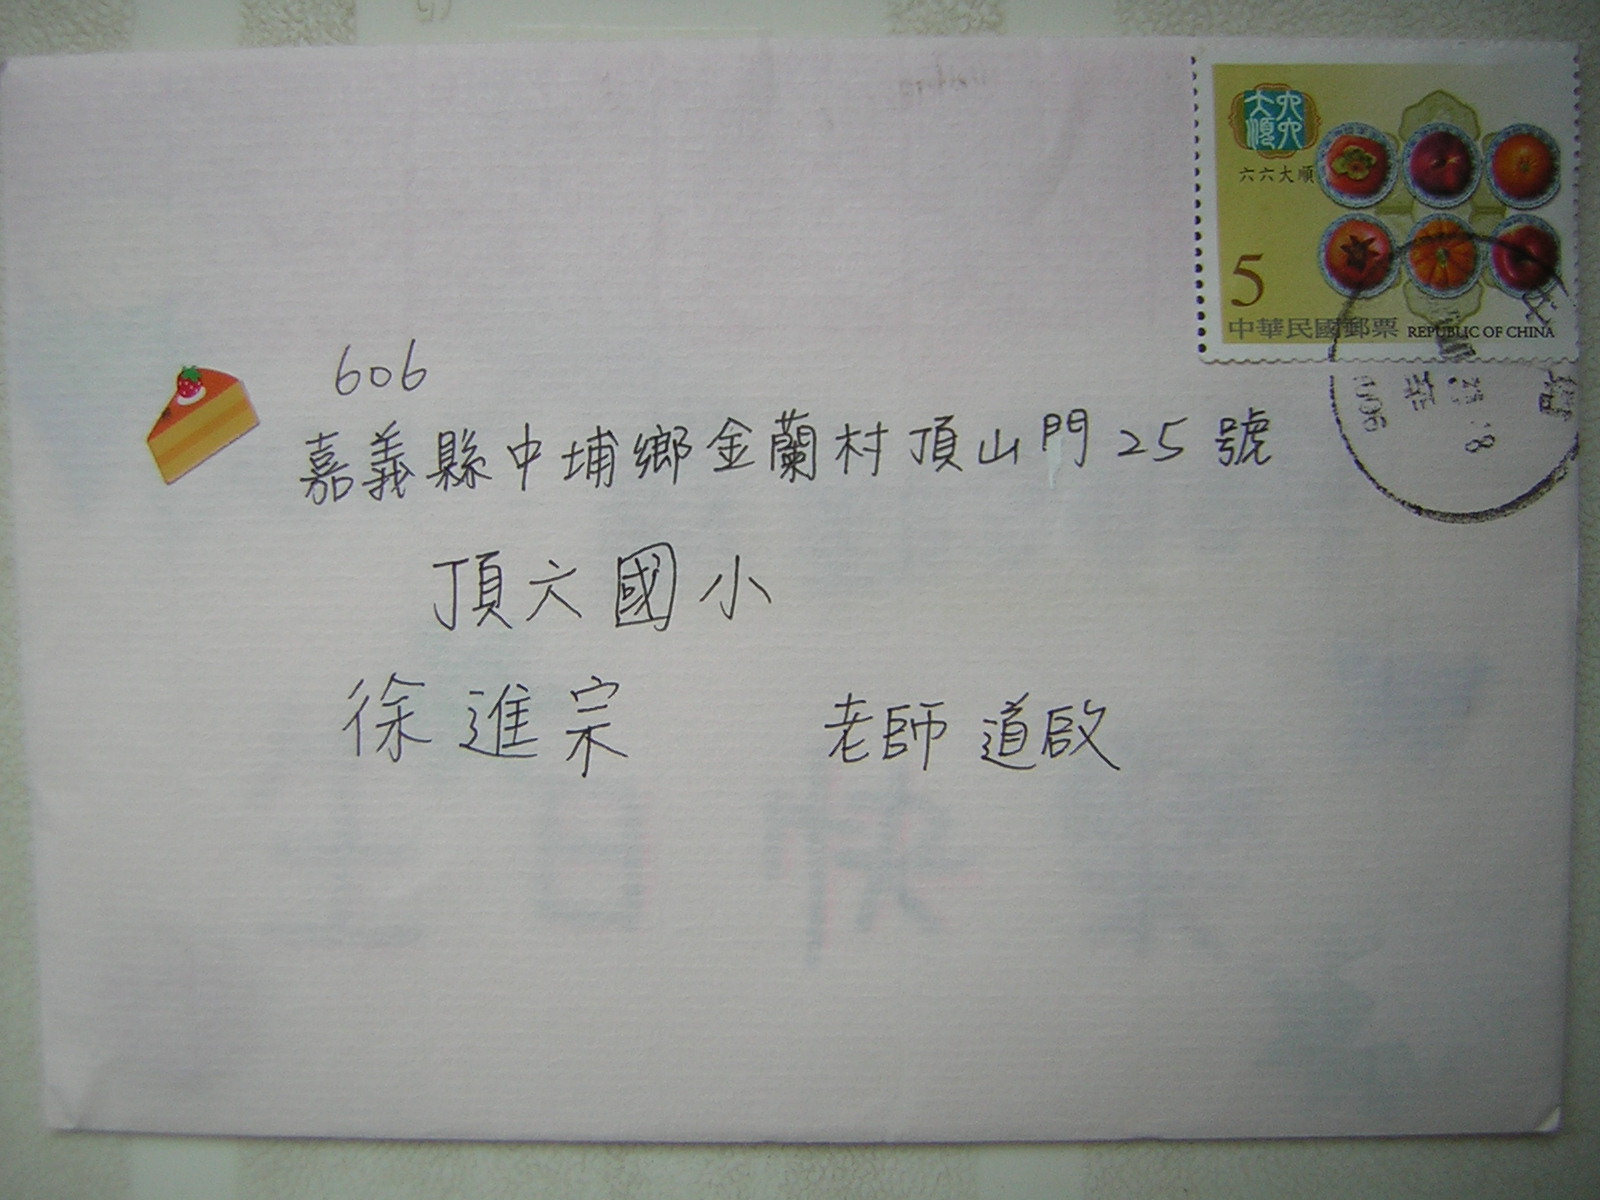 六六
大順
六六大順
5
中華民國郵票 REPUBLIC OF CHINA
606
嘉義縣中埔鄉金蘭村頂山門25號
頂六國小
徐進宗 老師 道啟